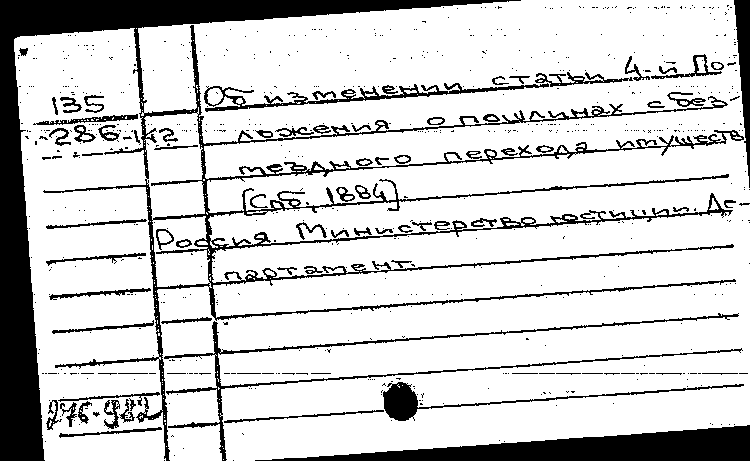 135
286-1к2
Об изменении статьи 4-й По-
ложения о пошлинах с без-
мездного перехода имуществ
[Спб, 1884].
Россия. Министерство юстиции. Де-
партамент.
276-982